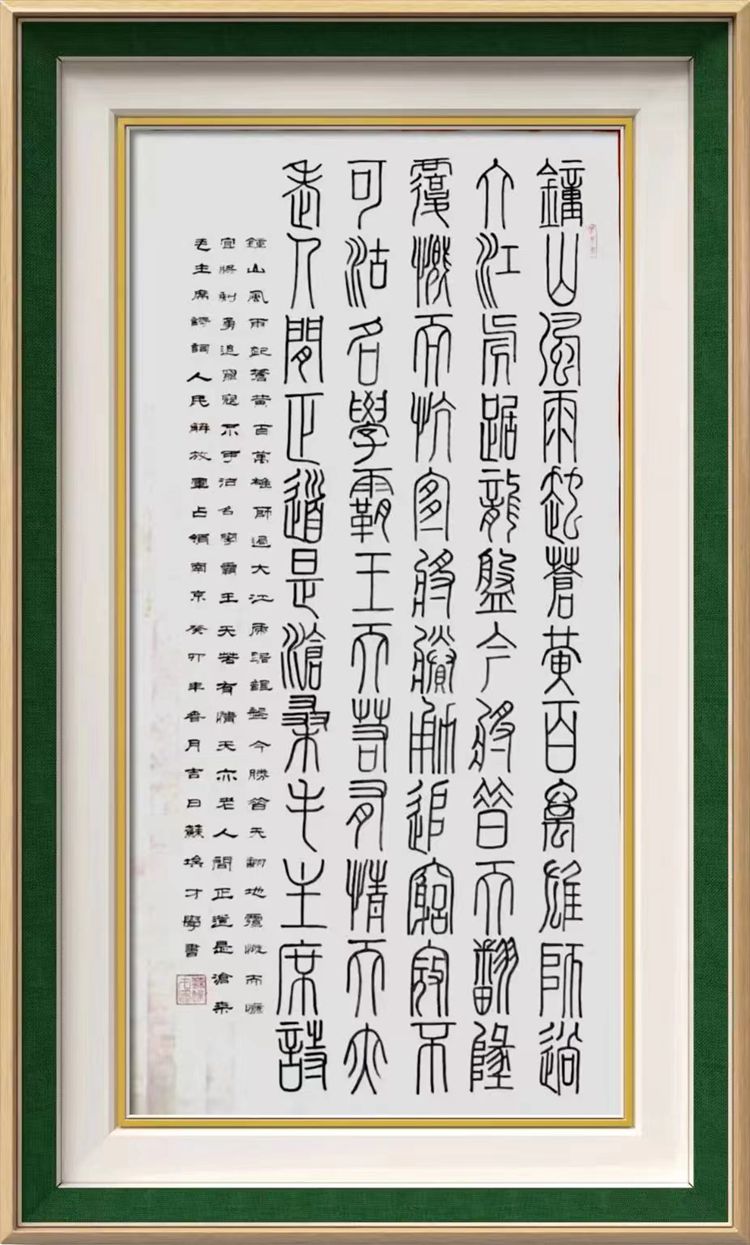 鐘山風雨起蒼黃百萬雄師過
大江虎踞龍盤今將昔天翻墬
覆慨而忼宜將賸勇追窮寇不
可沽名學霸王天若有情天亦
老人間正道是滄桑毛主席詩
鍾山風雨起蒼黃百萬雄師過大江虎踞龍盤今勝昔天翻地覆慨而慷
宜將剩勇追窮寇不可沽名學霸王天若有情天亦老人間正道是滄桑
毛主席詩詞人民解放軍占領南京癸卯年春月吉日蘇才學書